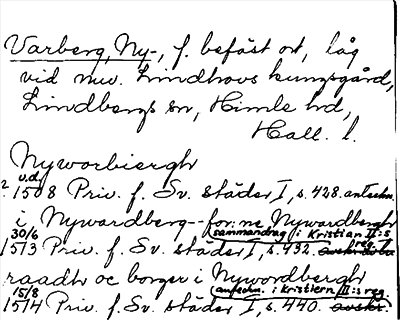 Varberg, Ny-, f. befäst ort, låg
vid nuv. Lindhovs kungsgård,
Lindbergs sn, Himle hd,
Hall. l.
Nyworbiergh
u.d.
? 1508 Priv. f. Sv. städer I, s. 428. anteckn.
i Nywardberg -- for:ne Nywardbergh
30/6 (sammandrag i Kristian II:s reg.)
1513 Priv. f. Sv. städer I, s. 432.
raadh oc borger i Nywordbergh
15/8 (anteckn. i Kristiern II:s reg.
1514 Priv. f. Sv. städer I, s. 440. avskr.